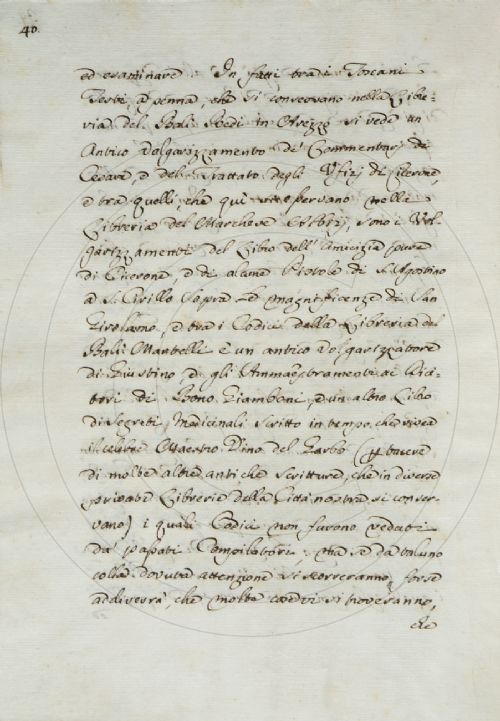 40.
ed esaminare. In fatti tra i Toscani
Testi, a penna, che si conservano nella Libre-
ria del Balì Redi in Arezzo si vede un
Antico Volgarizzamento de' Commentarj di
Cesare, e del Trattato degli Ufizj di Cicerone,
e tra quelli, che qui si osservano nella
Libreria del Marchese Albizj, sono i Vol-
garizzamenti del Libro dell' Amicizia pure
di Cicerone e di alcune Pistole di S. Agostino
a S. Cirillo sopra le magnificenze di San
Girolamo, e tra i Codici della Libreria del
Balì Martelli è un antico Volgarizzatore
di Giustino e gli Ammaestramenti ai Dici-
tori di Bono Giamboni, e un altro Libro
di Segreti Medicinali scritto in tempo, che vivea
il celebre Maestro Dino del Garbo (per tacere
di molte altre antiche Scritture, che in diverse
private Librerie della Città nostra si conser-
vano) i quali Codici non furono veduti
da' passati Compilatori, ma se da taluno
colla dovuta attenzione si scorreranno, forse
addiverrà, che molte si troveranno,
che